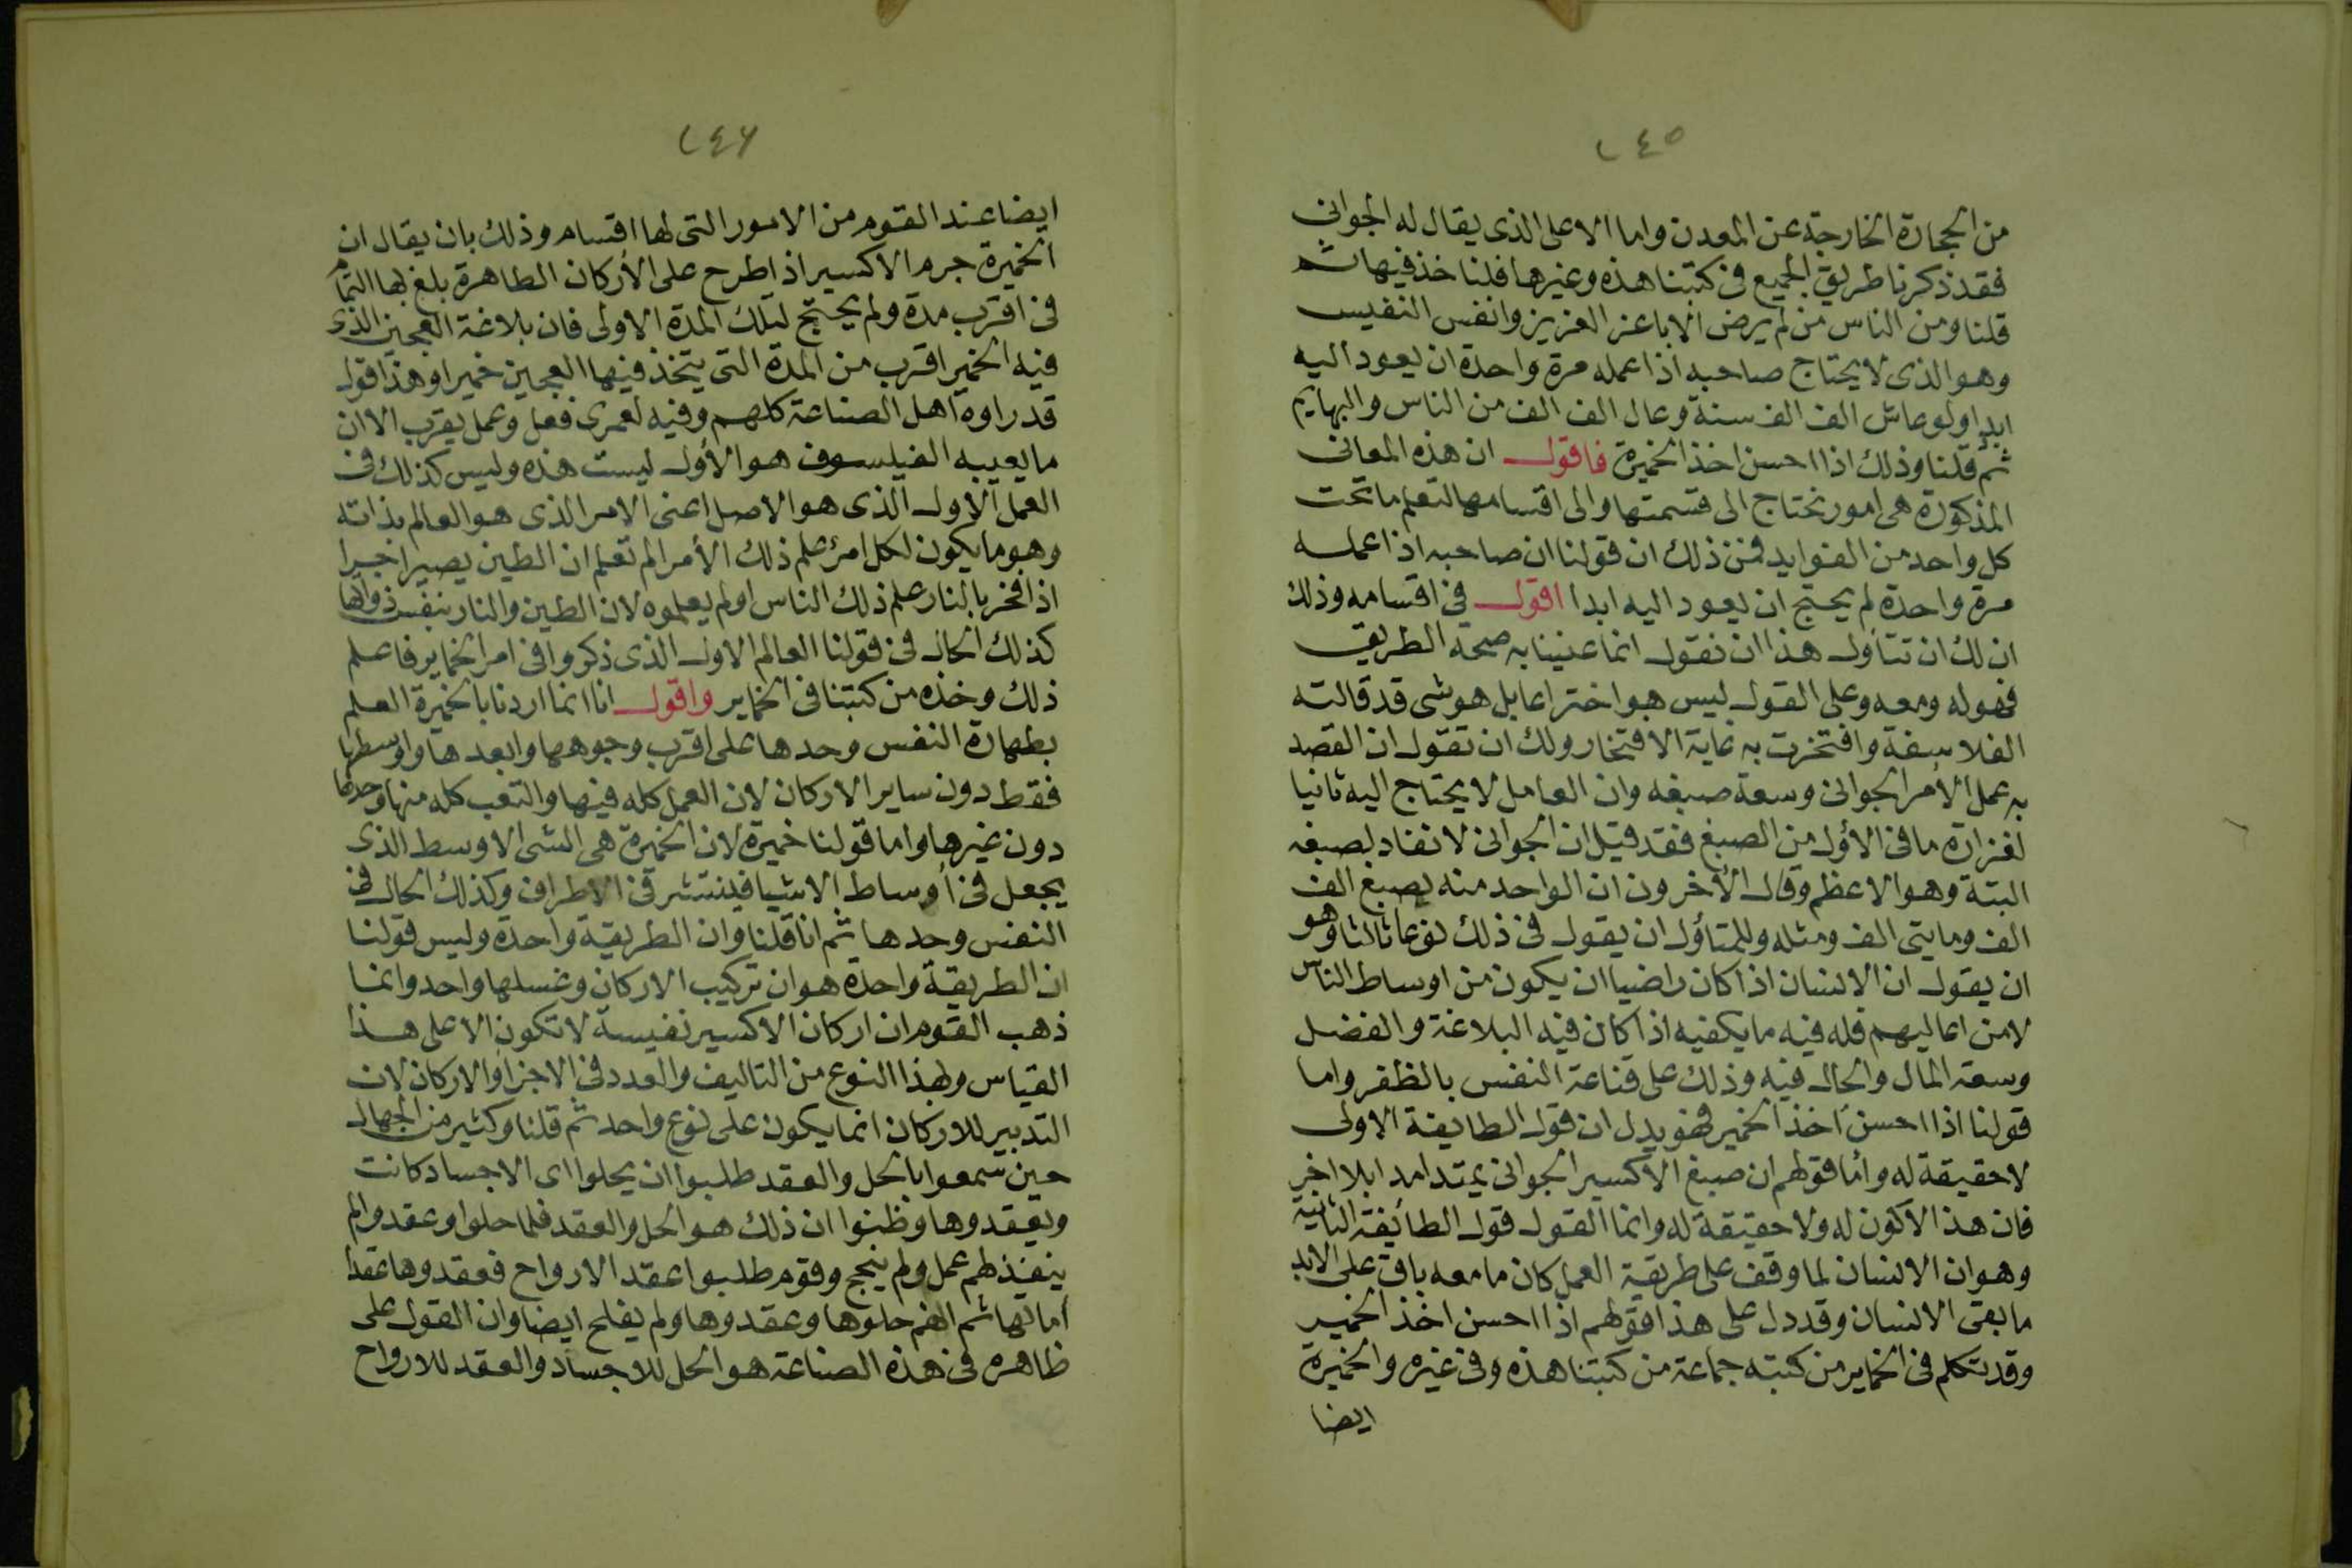 ٢٤٥
من الحجارة الخارجة عن المعدن واما الاعلى الذى يقال له الجوانى
فقد ذكرنا طريق الجميع فى كتبنا هذه وغيرها فلنا خذ فيها ثم
قلنا ومن الناس من لم يرض الا باعز العزيز وانفس النفيس
وهو الذى لا يحتاج صاحبه اذا عمله مرة واحدة ان يعود اليه
ابدا ولو عاش الف الف سنة وعال الف الف من الناس والبهايم
ثم قلنا وذلك اذا احسن اخذ الخميرة فاقول ان هذه المعانى
المذكورة هى امور نحتاج الى قسمتها والى اقسامها لتعلم ما تحت
كل واحد من الفوايد فمن ذلك ان قولنا ان صاحبه اذا عمله
مرة واحدة لم يحتج ان يعود اليه ابدا اقول فى اقسامه وذلك
ان لك ان تتاول هذا ان نقول انما عنينا به صحة الطريق
فهو له ومعه وعلى القول ليس هو اختراعا بل هو شى قد قالته
الفلاسفة وافتخرت به غاية الافتخار ولك ان تقول ان القصد
به عمل الأمر الجوانى وسعة صبغه وان العامل لا يحتاج اليه ثانيا
لغزارة ما فى الأول من الصبغ فقد قيل ان الجوانى لا نفاد لصبغه
البتة وهو الاعظم وقال الأخرون ان الواحد منه يصبغ الف
الف ومايتى الف ومثله وللمتأول ان يقول فى ذلك نوعا ثالثا وهو
ان يقول ان الانسان اذا كان راضيا ان يكون من اوساط الناس
لا من اعاليهم فله فيه ما يكفيه اذا كان فيه البلاغة والفضل
وسعة المال والحال فيه وذلك على قناعة النفس بالظفر واما
قولنا اذا احسن اخذ الخمير فهو يدل ان قول الطايفة الاولى
لا حقيقة له واما قولهم ان صبغ الاكسير الجوانى يمتد امدا بلا اخر
فان هذا لا كون له ولا حقيقة له وانما القول قول الطائفة الثانية
وهو ان الانسان لما وقف على طريقة العمل كان ما معه باق على الابد
ما بقى الانسان وقد دل على هذا قولهم اذا احسن اخذ الخمير
وقد تكلم فى الخماير من كتبه جماعة من كتبنا هذه وفى غيره والخميرة
ايضا
٢٤٦
ايضا عند القوم من الامور التى لها اقسام وذلك بان يقال ان
الخميرة جرم الاكسير اذا طرح على الأركان الطاهرة بلغ بها التمام
فى اقرب مدة ولم يحتج لتلك المدة الاولى فان بلاغة العجين الذى
فيه الخمير اقرب من المدة التى يتخذ فيها العجين خميرا وهذا قول
قد راوه اهل الصناعة كلهم وفيه لعمرى فعل وعمل يقرب الا ان
ما يعيبه الفيلسوف هو الأول ليست هذه وليس كذلك فى
العمل الاول الذى هو الاصل اعنى الامر الذى هو العالم بذاته
وهو ما يكون لكل امرئ علم ذلك الأمر الم تعلم ان الطين يصير اجرا
اذا فخر بالنار علم ذلك الناس او لم يعلموه لان الطين والنار بنفس ذواتها
كذلك الحال فى قولنا العالم الاول الذى ذكروا فى امر الخماير فاعلم
ذلك وخذه من كتبنا فى الخماير واقول انا انما اردنا بالخميرة العلم
بطهارة النفس وحدها على اقرب وجوهها وابعدها واوسطها
فقط دون ساير الاركان لان العمل كله فيها والتعب كله منها وحدها
دون غيرها واما قولنا خميرة لان الخميرة هى الشى الاوسط الذى
يجعل فى أوساط الاشيا فينتشر فى الاطراف وكذلك الحال فى
النفس وحدها ثم انا قلنا وان الطريقة واحدة وليس قولنا
ان الطريقة واحدة هو ان تركيب الاركان وغسلها واحد وانما
ذهب القوم ان اركان الاكسير نفيسة لا تكون الا على هذا
القياس ولهذا النوع من التاليف والعدد فى الاجزا والاركان لان
التدبير للاركان انما يكون على نوع واحد ثم قلنا وكثير من الجهال
حين سمعوا بالحل والعقد طلبوا ان يحلوا اى الاجساد كانت
ويعقدوها وظنوا ان ذلك هو الحل والعقد فلما حلوا وعقدوا لم
ينفذ لهم عمل ولم ينجح وقوم طلبوا عقد الارواح فعقدوها عقدا
اماتها ثم انهم حلوها وعقدوها ولم يفلح ايضا وان القول على
ظاهره فى هذه الصناعة هو الحل للاجساد والعقد للارواح